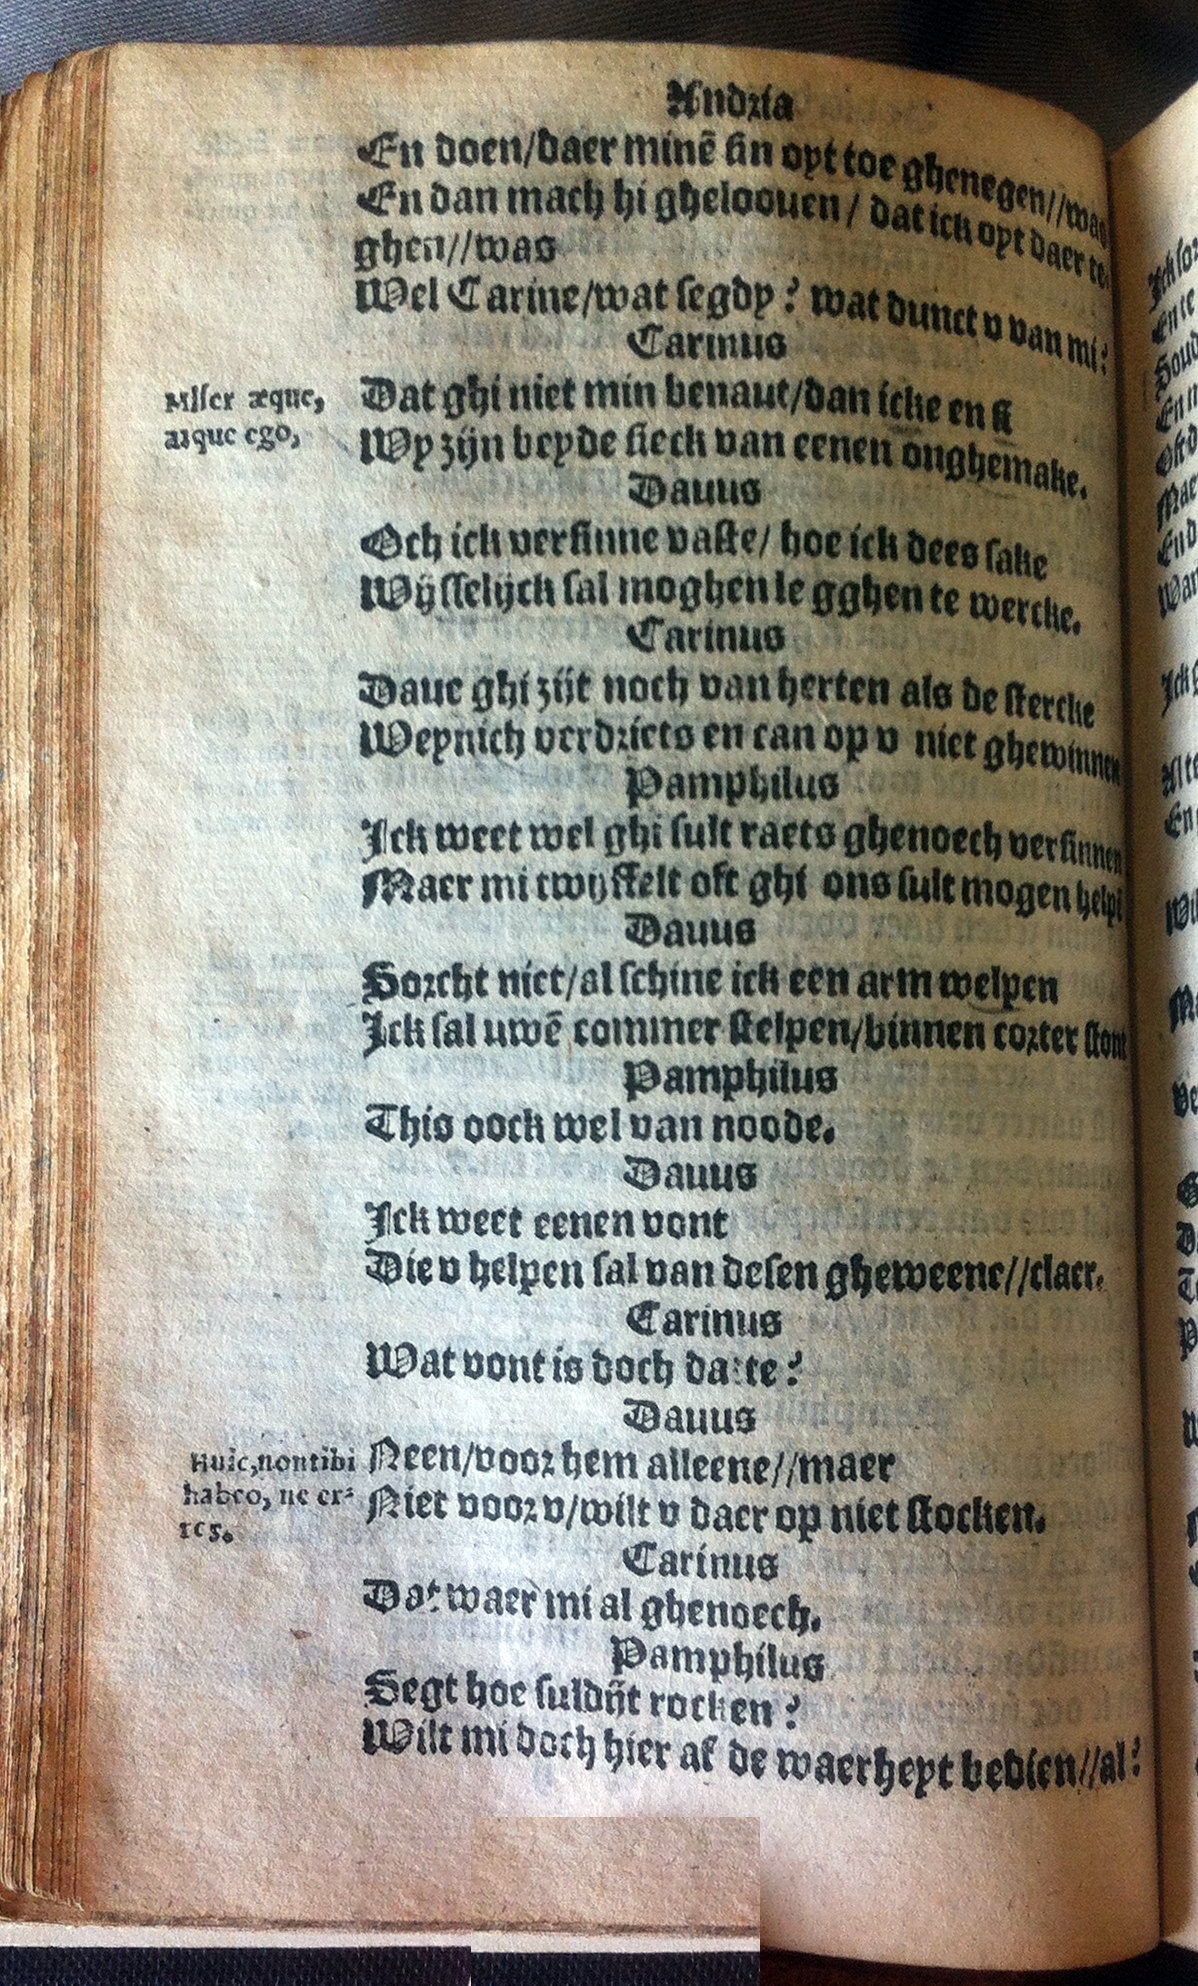 Andria
En doen/daer minē sin oyt toe ghenegen//was
En dan mach hi gheloouen / dat ick oyt daer te
ghen//was
Wel Carine/wat segdy? wat dunct v van mi?
Carinus
Miser æque,
atque ego,
Dat ghi niet min benaut/dan icke en si
Wy zijn beyde sieck van eenen onghemake.
Dauus
Och ick versinne vaste/ hoe ick dees sake
Wijsselijck sal moghen le gghen te wercke.
Carinus
Daue ghi zijt noch van herten als de stercke
Weynich verdriets en can op v niet ghewinnen
Pamphilus
Ick weet wel ghi sult raets ghenoech versinnen
Maer mi twijffelt oft ghi ons sult mogen helpē
Dauus
Sorcht niet/al schine ick een arm welpen
Ick sal uwē commer stelpen/binnen corter stont
Pamphilus
This oock wel van noode.
Dauus
Ick weet eenen vont
Die v helpen sal van desen gheweene//claer.
Carinus
Wat vont is doch datte?
Dauus
Huic, non tibi
habeo, ne er-
res.
Neen/voor hem alleene//maer
Niet voor v/wilt v daer op niet stocken.
Carinus
Dat waer mi al ghenoech.
Pamphilus
Segt hoe suldijt rocken?
Wilt mi doch hier af de waerheyt bedien//al?